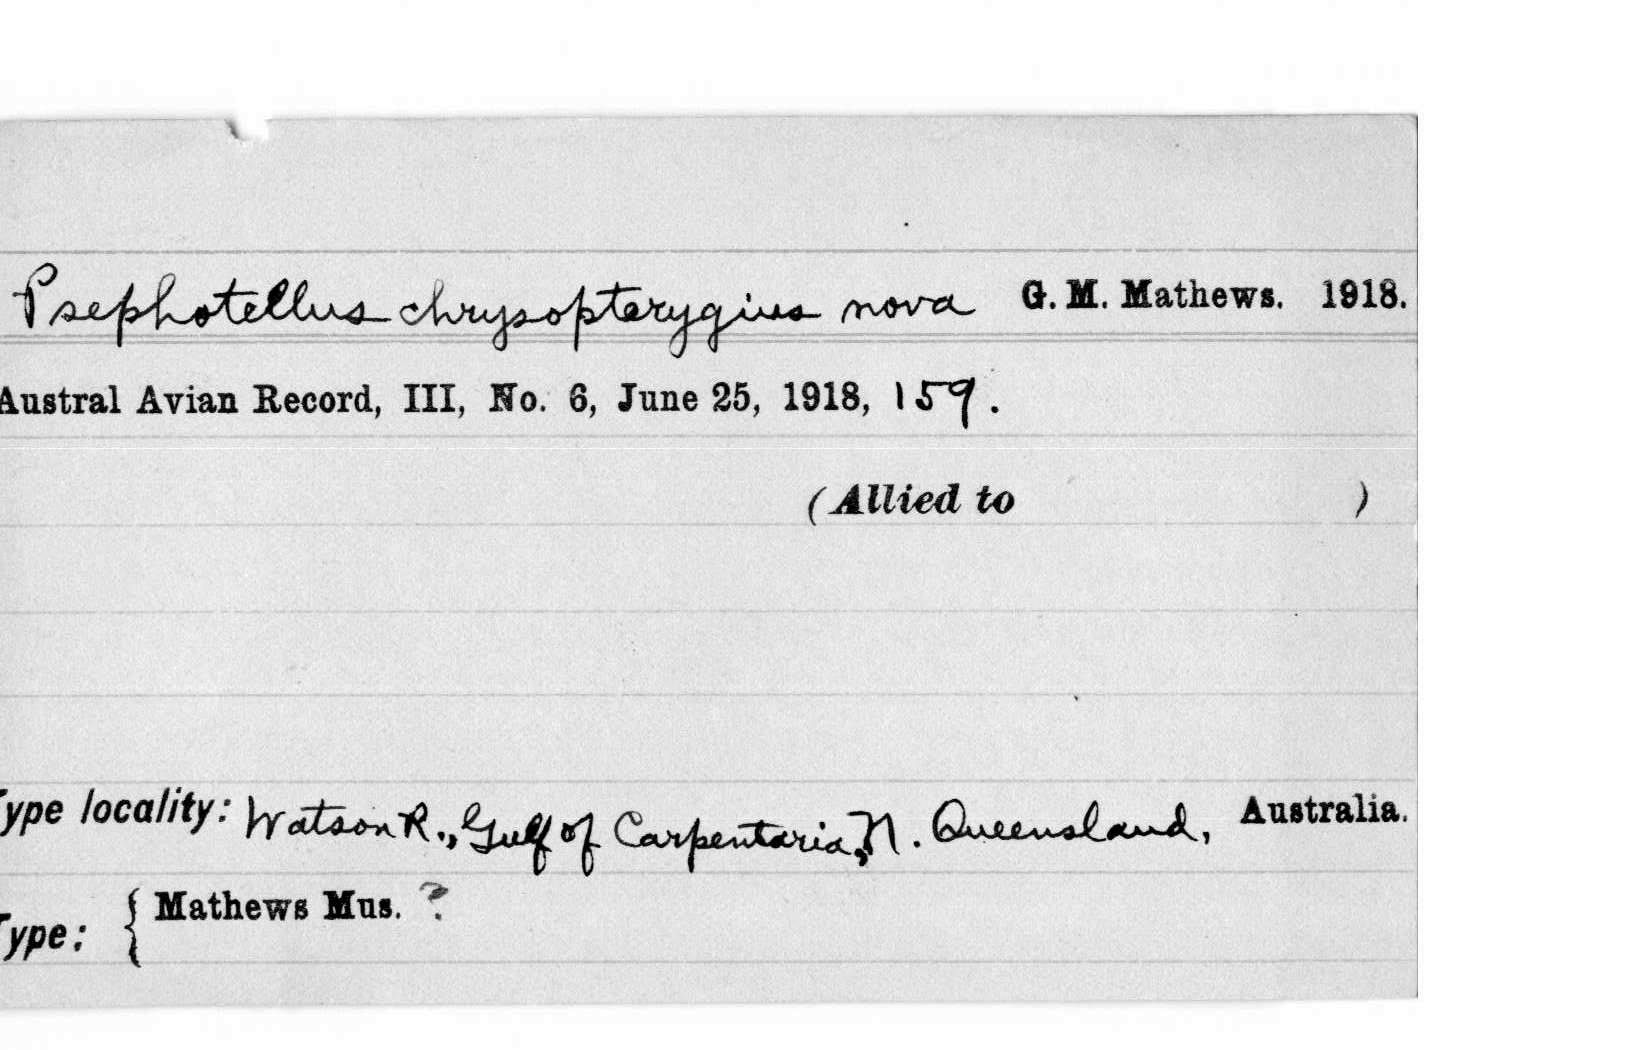 Psephotellus chrysopterygius nova G. M. Mathews. 1918.
Austral Avian Record, III, No. 6, June 25, 1918, 159.
(Allied to )
Type locality: Watson R., Gulf of Carpentaria, N. Queensland, Australia.
Type: { Mathews Mus. ?